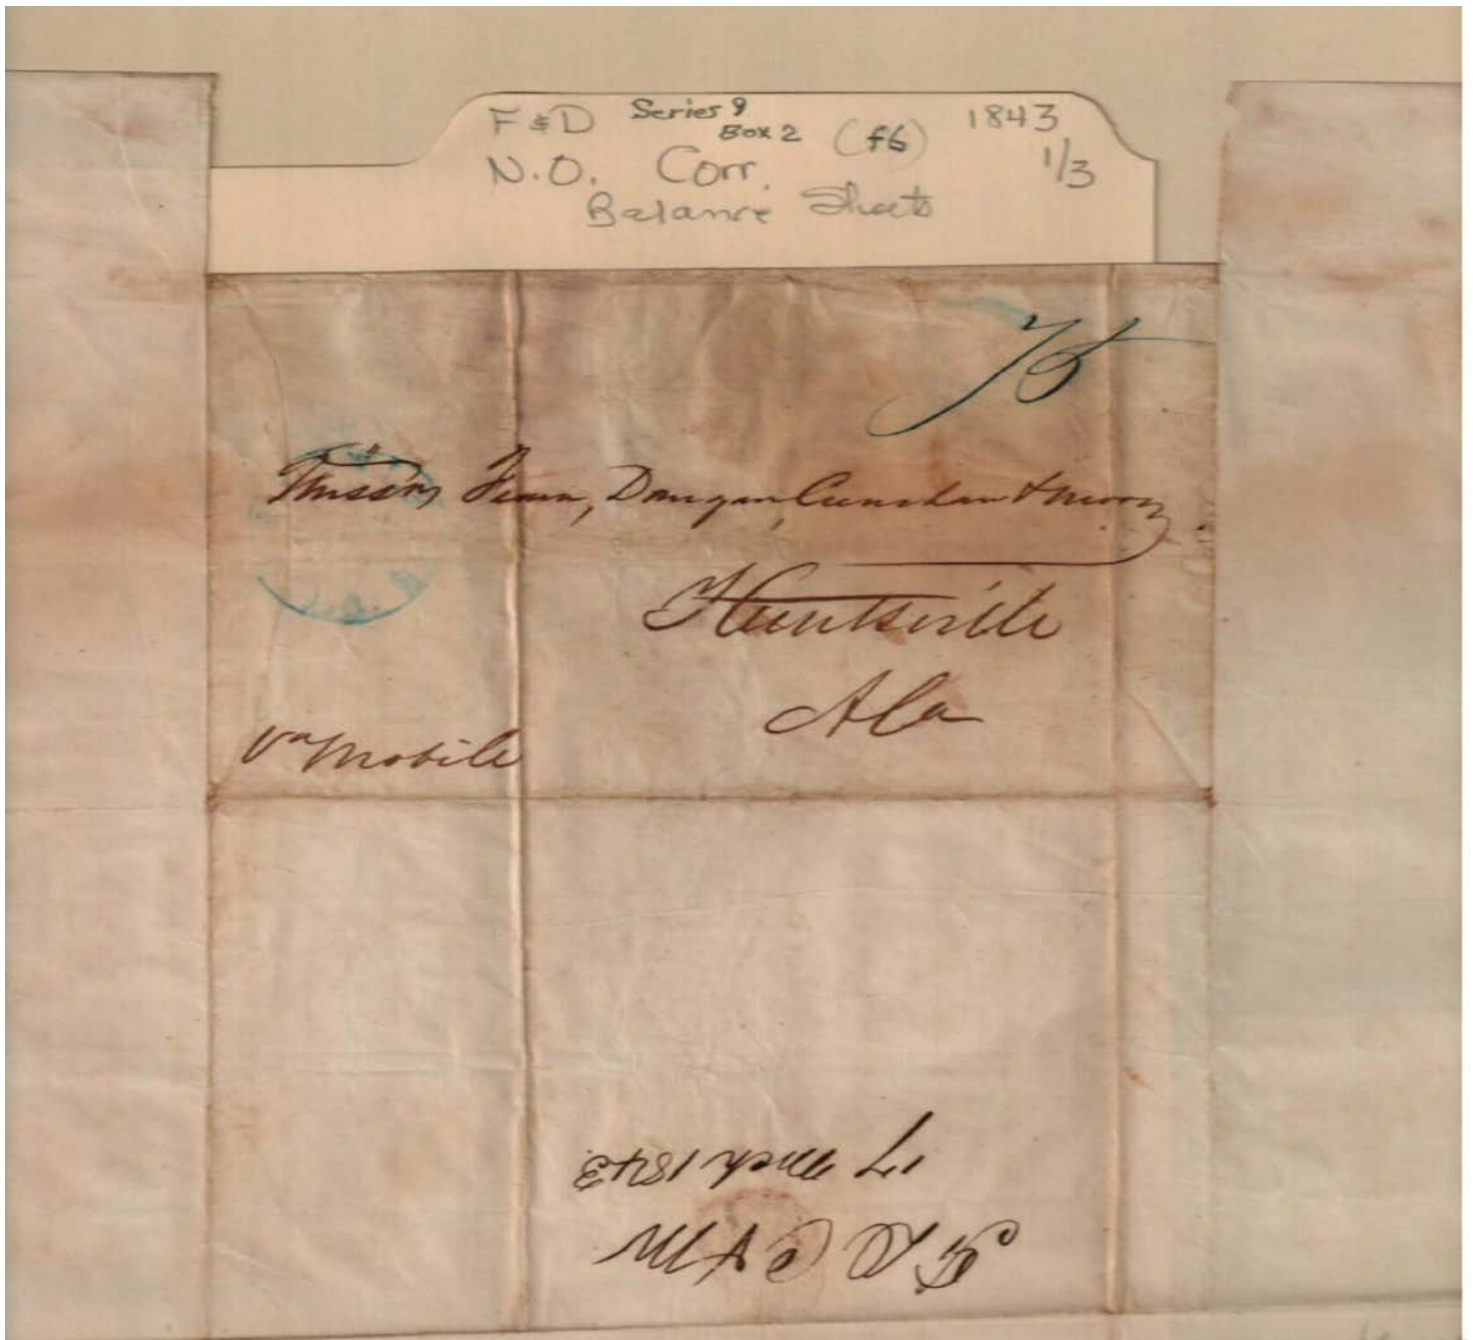 F & D Series 9 Box 2 (f6) 1843
N.O. Corr. 1/3
Balance Sheets
75
Messrs Fearn, Donegan, Crenshaw & Moore
Huntsville
Ala
Via Mobile
F. D. C & M
17 Mch 1843